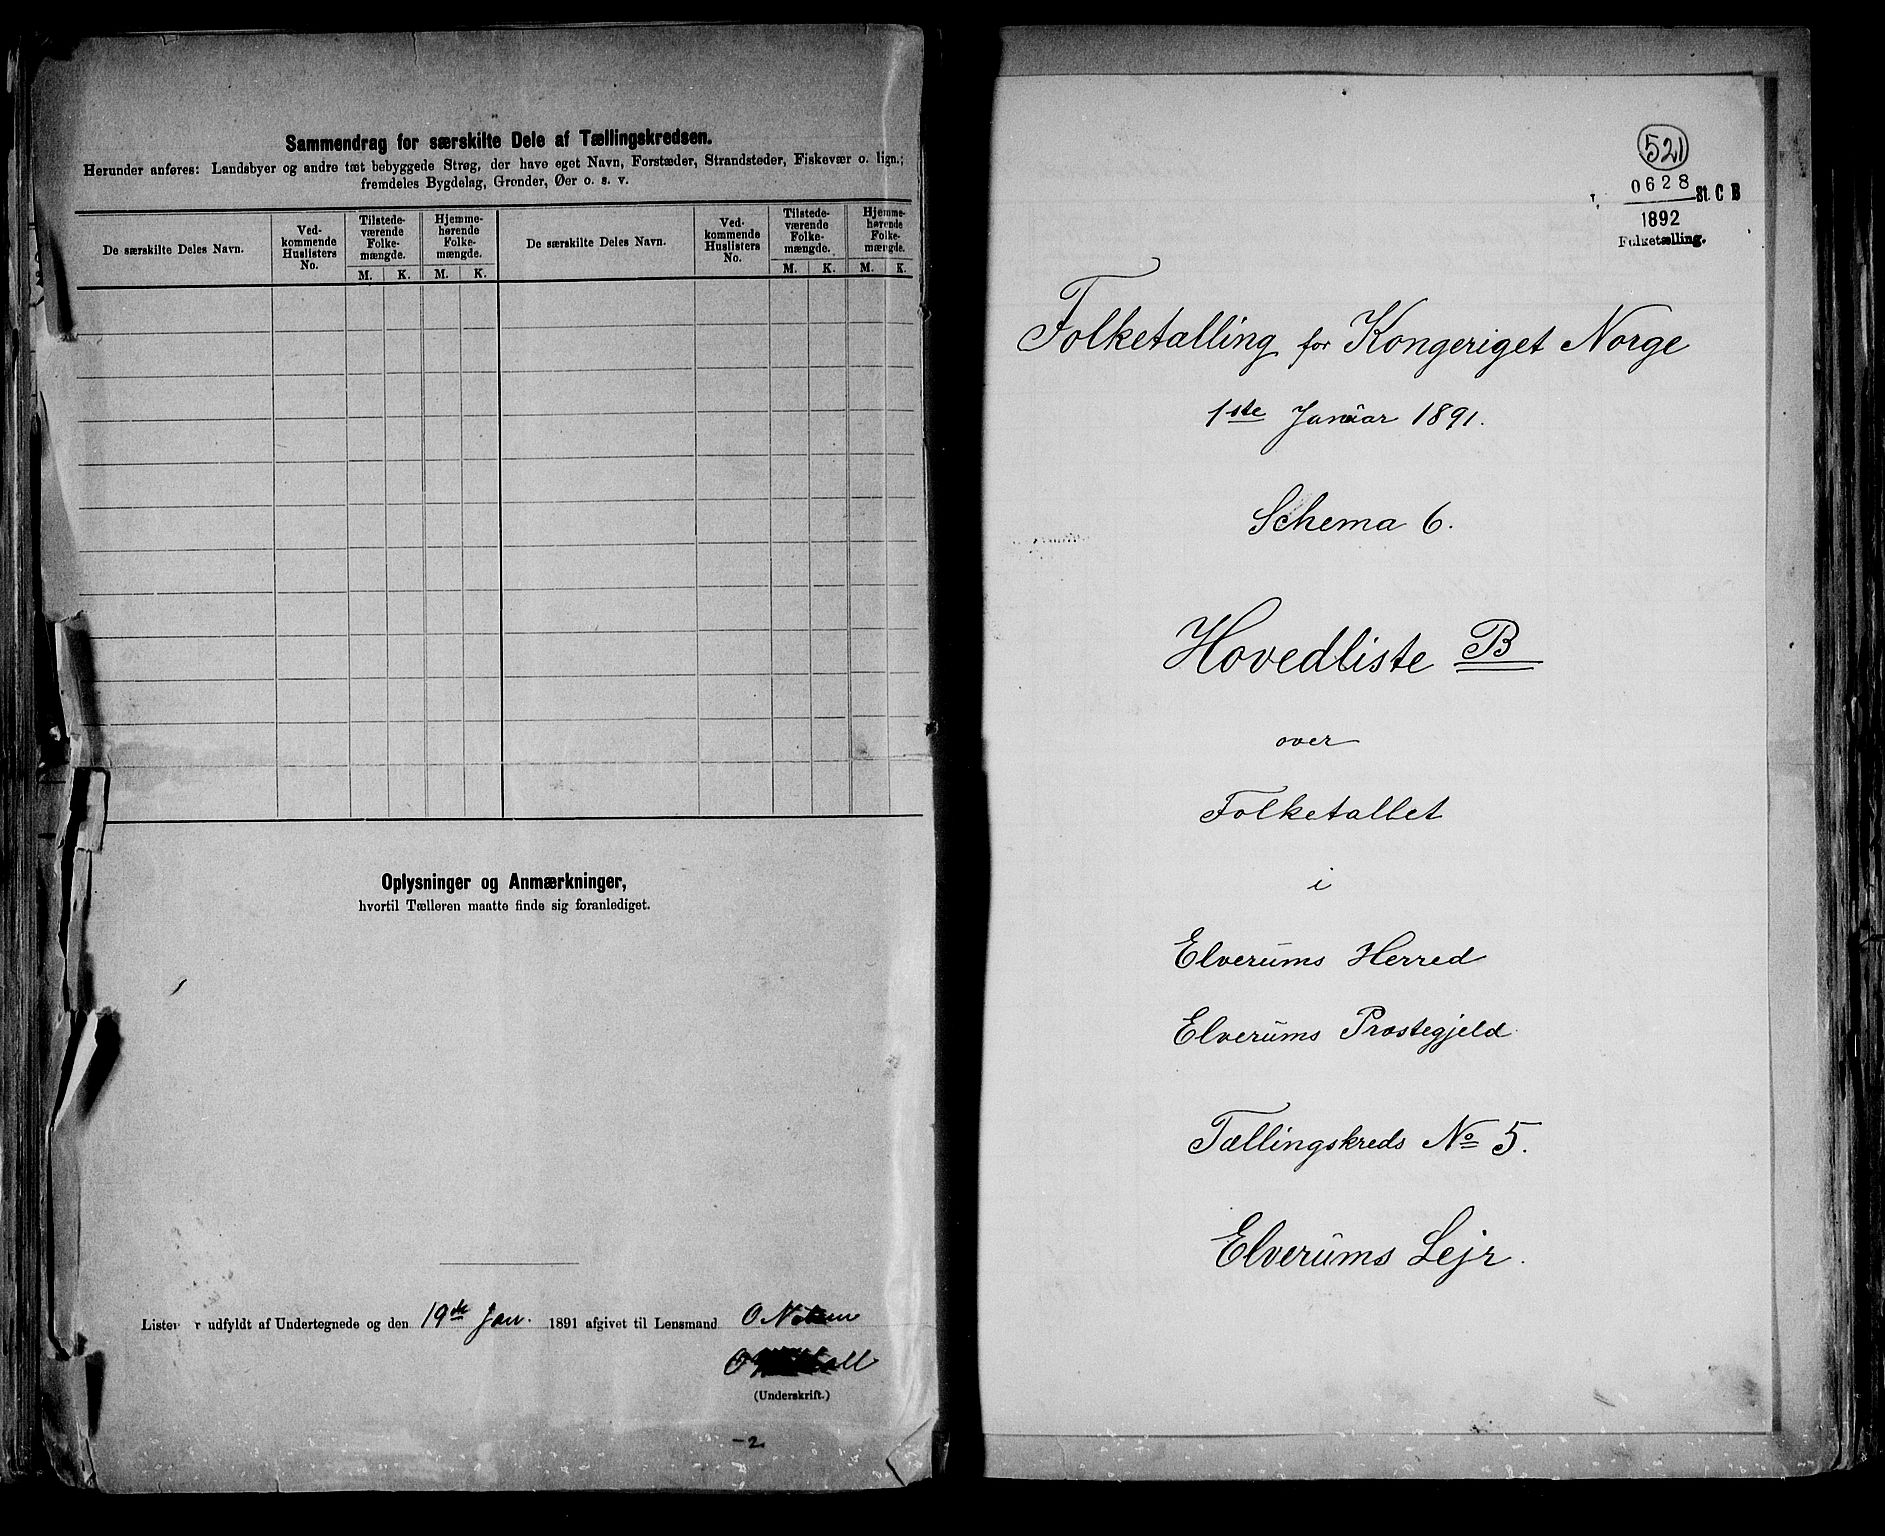 Sammendrag for særskilte Dele af Tællingskredsen.
Herunder anføres: Landsbyer og andre tæt bebyggede Strøg, der have eget Navn, Forstæder, Strandsteder, Fiskevær o. lign.;
fremdeles Bygdelag, Grender, Øer o. s. v.
De særskilte Deles Navn.
Ved-
kommende
Huslisters
No.
Tilstede-
værende
Folke-
mængde.
M. K.
Hjemme-
hørende
Folke-
mængde.
M. K.
De særskilte Deles Navn.
Ved-
kommende
Huslisters
No.
Tilstede-
værende
Folke-
mængde.
M. K.
Hjemme-
hørende
Folke-
mængde.
M. K.
Oplysninger og Anmærkninger,
hvortil Tælleren maatte finde sig foranlediget.
Listen udfyldt af Undertegnede og den 19de Jan. 1891 afgivet til Lensmand O
(Underskrift.)
-2
521
0628 St. C B
1892
Folketælling.
Folketælling for Kongeriget Norge
1ste Januar 1891.
Schema 6.
Hovedliste B
over
Folketallet
i
Elverums Herred
Elverums Præstegjeld
Tællingskreds No 5.
Elverums Lejr.